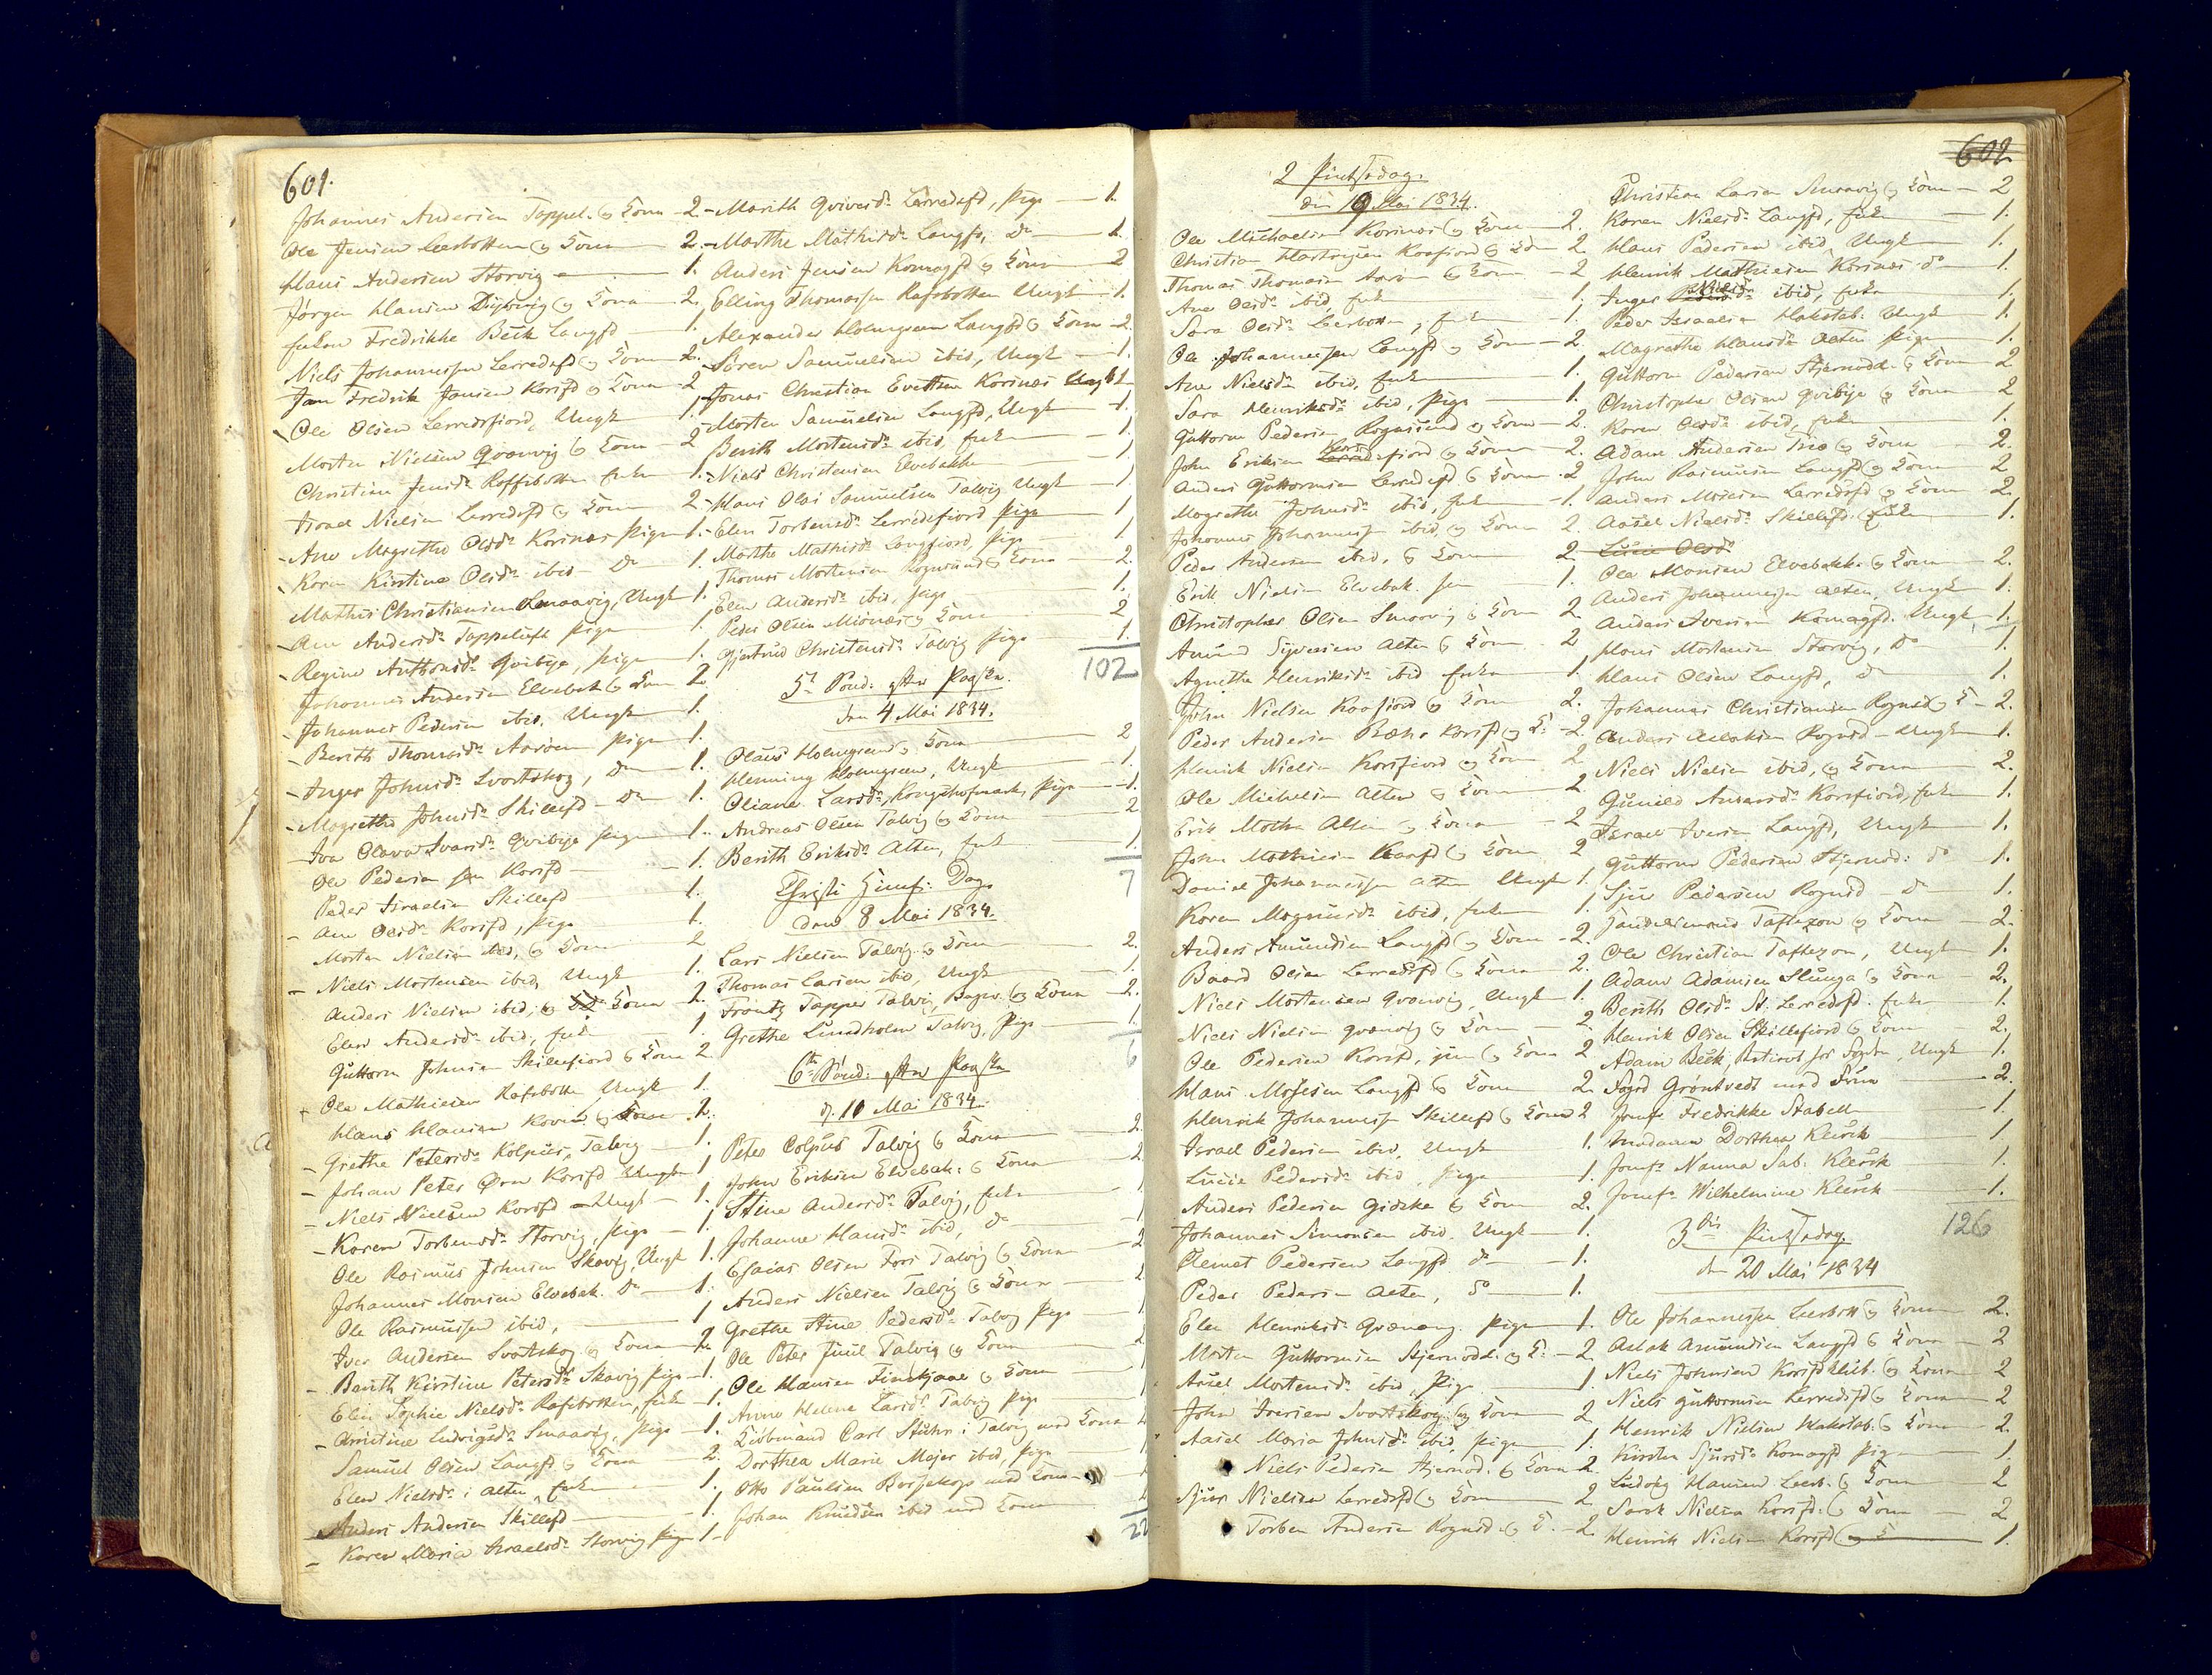 601.
Johannes Andersen Toppel. og Kona 2.
Ole Jensen Leerbotten og Kona 2.
Hans Andersen Storvig 1.
Jørgen Hansen og Kona 2.
Enken Fredrikke Beck Langfd 1.
Niels Johannessen Lerredsfd og Kona 2.
Jan Fredrik Jansen Korsfd og Kona 2
Ole Olsen Lerredsfiord, Ungk 1.
Morten Nielsen Qvænvig og Kona 2
Christine Jensd. Enke 1.
Israel Nielsen Lerredsfd og Kona 2
Ane Magrethe Olsdr Korsnæs Pige 1.
Karen Kirstine Olsdr ibid do 1.
Mathis Christiansen Smaavig, Ungk 1.
Ane Andersdr Pige 1.
Regine Anthonisdr Qvibye, Pige 1.
Johannes Andersen Elvebak og Kona 2
Johannes Pedersen ibid, Ungk 1.
Berith Thomasdr Aarøen Pige 1.
Inger Johnsdr Svartskog, do 1.
Magrethe Johnsdr Skillefd do 1.
Qvibye Pige 1.
Ole Pedersen sen Korsfd 1.
Peder Israelsen Skillefd 1.
Ane Olsdr Korsfd, Pige 1.
Morten Nielsen ibid, og Kona 2
Niels Mortensen ibid, Ungk 1.
Anders Nielsen ibid, og Kona 2.
Elen Andersdr ibid, Enke 1.
Guttorm Johnsen Skillefiord og Kona 2
Ole Mathisen Rafsbotten Ungk 1.
Hans Hansen og Kona 2.
Grethe Petersdr Kolpus, Talvig 1.
Johan Peter Ørn Korsfd Ungk 1
Niels Nielsen Korsfd Ungk 1.
Karen Torbensdr Storvig, Pige 1.
Ole Rasmus Johnsen Skavig, Ungk 1.
Johannes Monsen Elvebak. do 1.
Ole Rasmussen ibid, 1
Iver Andersen Svartskog og Kona 2.
Berith Kirstine Petersdr Skavig Pige 1.
Elen Sophie Nielsdr Rafsbotten, Enke 1.
Christine Ludvigsdr Smaavig, Pige 1.
Samuel Olsen Langfd og Kona 2.
Elen Nielsdr i Alten, Enke 1.
Anders Andersen Skillefd 1.
Karen Maria Israelsdr Storvig Pige 1
Marith Lerredsfd, Pige 1.
Marthe Mathisdr Langfd, do 1.
Anders Jensen Komagfd og Kona 2
Elling Thomassen Rafsbotten Ungk 1.
Alexander Holmgreen Langfd og Kona 2.
Søren Samuelsen ibid, Ungk 1.
Jonas Christian Evertsen Korsnæs Ungk 1
Morten Samuelsen Langfd, Ungk 1.
Berith Mortensdr ibid, Enke 1.
Niels Christensen Elvebakken 1
Hans Olai Samuelsen Talvig Ungk 1
Elen Torbensdr Lerredsfiord Pige 1
Marthe Mathisdr Langfiord, Pige 1
Thomas Mortensen Rognsund og Kona 2.
Elen Andersdr ibid, Pige 1.
Peder Olsen og Kona 2
Gjertrud Christensdr Talvig Pige 1.
102
5te Sönd. efter Paaske.
den 4 Mai 1834.
Olaus Holmgreen og Kona 2
Henning Holmgreen, Ungk 1.
Oliane Larsdr, Kongshofmark, Pige 1.
Andreas Olsen Talvig og Kona 2
Berith Eriksdr Alten, Enk 1.
7
Christi Himf: Dag
den 8 Mai 1834.
Lars Nielsen Talvig og Kona 2.
Thomas Larsen ibid, Ungk 1.
Frantz Tapper Talvig, og Kona 2.
Grethe Lundholm Talvig, Pige 1.
6
6te Sönd: efter Paaske
d. 11 Mai 1834.
Peter Colpus Talvig og Kona 2.
John Eriksen Elvebak: og Kona 2.
Stine Andersdr Talvig, Enke 1
Johanne Hansdr ibid, do 1
Esaias Olsen Fors Talvig og Kona 2
Anders Nielsen Talvig og Kona 2
Grethe Stine Pedersdr Talvig Pige 1
Ole Peter Juul Talvig og Kona 2
Ole Hansen Finskjaae og Kona
Anne Helene Larsdr Talvig Pige
Kiöbmand Carl Stuhr i Talvig med Kona
Dorthea Marie Majer ibid, Pige
Otto Paulsen Borsjekop med Kona
Johan Knudsen ibid med Kona
22
602
2 Pintsedag.
den 19 Mai 1834.
Ole Michaelsen Korsnæs og Kona 2.
Christian Kaafiord og Kona 2
Thomas Thomasen og Kona 2
Ane Olsdr ibid, Enke 1.
Sara Olsdr Leerbotten, Enke 1.
Ole Johannessen Langfd og Kona 2.
Ane Nielsdr ibid, Enke 1.
Sara Henriksdr ibid, Pige 1.
Guttorm Pedersen Rognsund og Kona 2.
John Eriksen Korsfiord og Kona 2.
Anders Guttormsen Lerredsfd og Kona 2
Magrethe Johnsdr ibid, Enke 1.
Johannes Johannessen ibid, og Kona 2.
Peder Andersen ibid, og Kona 2
Erik Nielsen Elvebak. sen 1.
Christopher Olsen Smaavig og Kona 2.
Amund Siversen Alten og Kona 2
Agnethe Henriksdr ibid Enke 1
John Nielsen Kaafiord og Kona 2.
Peder Andersen Korsfd og K: 2
Henrik Nielsen Korsfiord og Kona 2
Ole Michelsen Alten og Kona 2
Erik Mothe Alten og Kona 2
John Mathisen Kaafd og Kona 2
Daniel Johannessen Alten Ungk 1.
Karen Magnusdr ibid, Enke 1
Anders Amundsen Langfd og Kona 2.
Baard Olsen Lerredsfd og Kona 2.
Niels Mortensen Qvænvig, Ungk 1.
Niels Nielsen Qvænvig og Kona 2.
Ole Pedersen Korsfd, jun og Kona 2
Hans Mossesen Langfd og Kona 2.
Henrik Johannessen Skillefd og Kona 2
Israel Pedersen ibid, Ungk 1.
Lucie Pedersdr ibid, Pige 1.
Anders Pedersen Gidske og Kona 2.
Johannes Simonsen ibid. Ungk 1.
Clemet Pedersen Langfd do 1.
Peder Pedersen Alten, do 1.
Elen Henriksdr Qvænang. Pige 1.
Morten Guttormsen Stjernødd. og K: 2
Aasel Mortensdr ibid, Pige 1
John Iversen Svartskog og Kona 2
Aasel Maria Johnsdr ibid, Pige 1.
Niels Pedersen Stjernød: og Kona 2.
Sjur Nielsen Lerredsfd og Kona 2
Torben Andersen Rognsd. og K. 2.
Christian Larsen Smaavig og Kona 2
Karen Nielsdr Langfd, Enke 1.
Hans Pedersen ibid, Ungk 1.
Henrik Mathiesen Korsnæs do 1.
Inger Nielsdr ibid, Enke 1.
Peder Israelsen Hakstab. Ungk 1.
Magrethe Hansdr Alten Pige 1.
Guttorm Pedersen Stjernødd. og Kona 2
Christopher Olsen Qvibye og Kona 2
Karen Olsdr ibid, Enke 1.
Adam Andersen og Kona 2.
John Rasmusen Langfd og Kona 2
Anders Mosesen Lerredsfd og Kona 2.
Aasel Nielsdr Skillefd. Enke 1.
Lucie Olsdr
Ole Monsen Elvebakk. og Kona 2.
Anders Johannessen Alten, Ungk 1.
Anders Iversen Komagfd. Ungk 1.
Hans Mortensen Storvig, do 1.
Hans Olsen Langfd, do 1.
Johannes Christiansen Rognsd og K 2.
Anders Rognsd Ungk 1.
Niels Nielsen ibid, og Kona 2.
Gunild Andersdr Korsfiord, Enke 1.
Israel Iversen Langfd, Ungk 1.
Guttorm Pedersen Stjernød: do 1.
Sjur Pedersen Rognsd do 1.
Handelsmand Taftezon og Kona 2.
Ole Christian Taftezon, Ungk 1.
Adam Adamsen Slunga og Kona 2.
Berith Olsdr St. Lerredsfd. Enke 1.
Henrik Olsen Skillefiord og Kona 2.
Adam Beck, Ungk 1.
Fogd Grøntvedt med Frue 2.
Jomf. Fredrikke Stabell 1.
Madame Dorthea Klerck 1
Jomf. Nanna Sab. Klerck 1.
Jomf. Wilhelmine Klerck 1.
126
3die Pintsedag
den 20 Mai 1834
Ole Johannessen Leerbott og Kona 2.
Aslak Amundsen Langfd og Kona 2
Niels Johnsen og Kona 2
Niels Guttormsen Lerredsfd og Kona 2
Henrik Nielsen Hakstab. og Kona 2.
Kirsten Sjursdr Komagfd Pige 1.
Ludvig Hansen Leerb. og Kona 2
Sarak Nielsen Korsfd. og Kona 2
Henrik Nielsen Korsfd og K 1.